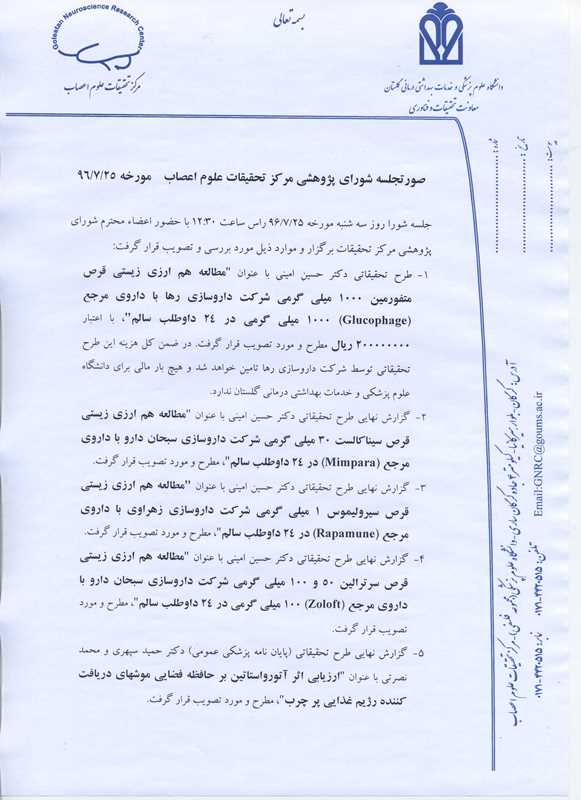 بسمه تعالی
Golestan Neuroscience Research Center
مرکز تحقیقات علوم اعصاب
دانشگاه علوم پزشکی و خدمات بهداشتی درمانی گلستان
معاونت تحقیقات و فناوری
شماره :
تاریخ :
پیوست :
صورتجلسه شورای پژوهشی مرکز تحقیقات علوم اعصاب مورخه ۹۶/۷/۲۵
جلسه شورا روز سه شنبه مورخه ۹۶/۷/۲۵ راس ساعت ۱۲:۳۰ با حضور اعضاء محترم شورای
پژوهشی مرکز تحقیقات برگزار و موارد ذیل مورد بررسی و تصویب قرار گرفت:
۱- طرح تحقیقاتی دکتر حسین امینی با عنوان "مطالعه هم ارزی زیستی قرص
متفورمین ۱۰۰۰ میلی گرمی شرکت داروسازی رها با داروی مرجع
(Glucophage) ۱۰۰۰ میلی گرمی در ۲۴ داوطلب سالم"، با اعتبار
۲۰۰۰۰۰۰۰۰ ریال مطرح و مورد تصویب قرار گرفت. در ضمن کل هزینه این طرح
تحقیقاتی توسط شرکت داروسازی رها تامین خواهد شد و هیچ بار مالی برای دانشگاه
علوم پزشکی و خدمات بهداشتی درمانی گلستان ندارد.
۲- گزارش نهایی طرح تحقیقاتی دکتر حسین امینی با عنوان "مطالعه هم ارزی زیستی
قرص سیناکالست ۳۰ میلی گرمی شرکت داروسازی سبحان دارو با داروی
مرجع (Mimpara) در ۲۴ داوطلب سالم"، مطرح و مورد تصویب قرار گرفت.
۳- گزارش نهایی طرح تحقیقاتی دکتر حسین امینی با عنوان "مطالعه هم ارزی زیستی
قرص سیرولیموس ۱ میلی گرمی شرکت داروسازی زهراوی با داروی
مرجع (Rapamune) در ۲۴ داوطلب سالم"، مطرح و مورد تصویب قرار گرفت.
۴- گزارش نهایی طرح تحقیقاتی دکتر حسین امینی با عنوان "مطالعه هم ارزی زیستی
قرص سرترالین ۵۰ و ۱۰۰ میلی گرمی شرکت داروسازی سبحان دارو با
داروی مرجع (Zoloft) ۱۰۰ میلی گرمی در ۲۴ داوطلب سالم"، مطرح و مورد
تصویب قرار گرفت.
۵- گزارش نهایی طرح تحقیقاتی (پایان نامه پزشکی عمومی) دکتر حمید سپهری و محمد
نصرتی با عنوان "ارزیابی اثر آتورواستاتین بر حافظه فضایی موشهای دریافت
کننده رژیم غذایی پر چرب"، مطرح و مورد تصویب قرار گرفت.
Email:GNRC@goums.ac.ir